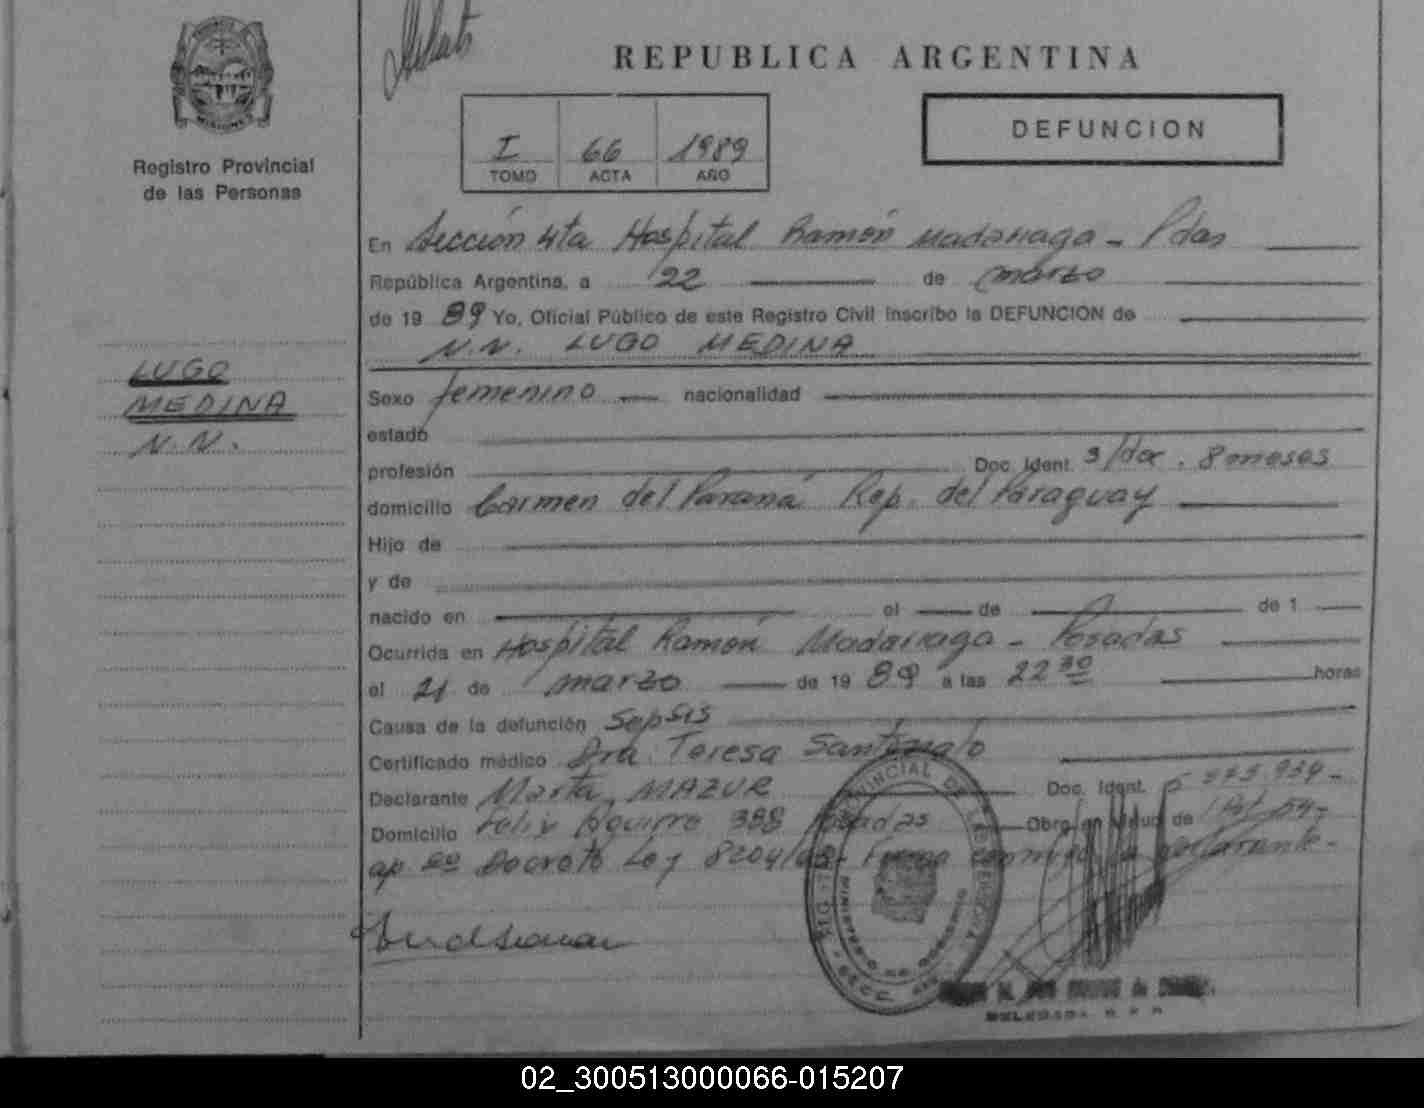 REPUBLICA ARGENTINA
MISIONES
Registro Provincial
de las Personas
I 66 1989
TOMO ACTA AÑO
DEFUNCION
En Sección 4ta Hospital Ramón Madariaga - Pdas
República Argentina, a 22 de marzo
de 19 89 Yo, Oficial Público de este Registro Civil inscribo la DEFUNCION de
N.N. LUGO MEDINA
LUGO
MEDINA
N.N.
Sexo femenino nacionalidad
estado
profesión Doc. Ident. s/doc. 8 meses
domicilio Carmen del Paraná Rep. del Paraguay
Hijo de
y de
nacido en el de de 1
Ocurrida en Hospital Ramón Madariaga - Posadas
el 21 de marzo de 19 89 a las 22 30 horas
Causa de la defunción Sepsis
Certificado médico Dra. Teresa
Declarante Marta MAZUR Doc. Ident.
Domicilio Felix Aguirre 388 Posadas Obra en virtud de
ap. Decreto Ley Firma conmigo la declarante.-
PROVINCIAL DE LAS PERSONAS
DELEGADA R.P.P.
02_300513000066-015207